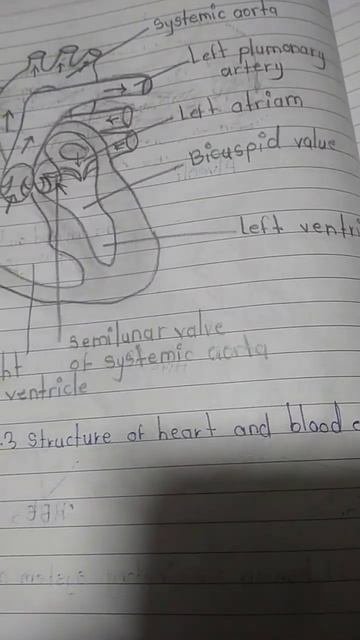 systemic aorta
Left plumonary
artery
Left atriam
Bicuspid value
Left ventri
semilunar valve
ht of systemic aorta
ventricle
.3 structure of heart and blood c